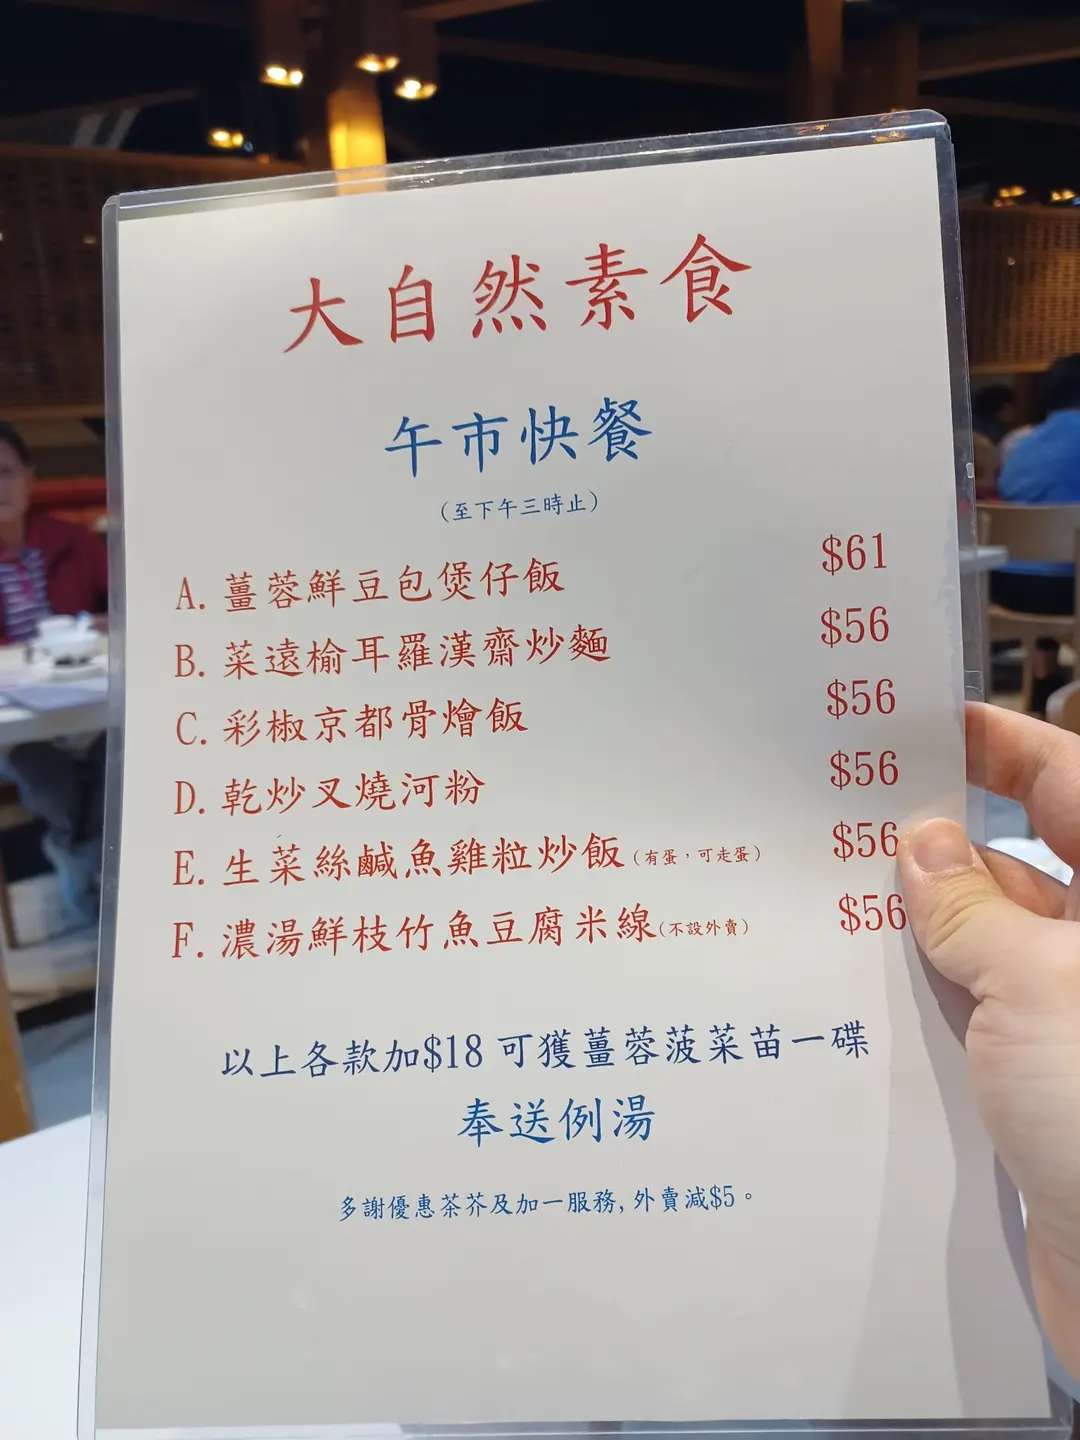 大自然素食
午市快餐
(至下午三時止)
A. 薑蓉鮮豆包煲仔飯 $61
B. 菜遠榆耳羅漢齋炒麵 $56
C. 彩椒京都骨燴飯 $56
D. 乾炒叉燒河粉 $56
E. 生菜絲鹹魚雞粒炒飯(有蛋，可走蛋) $56
F. 濃湯鮮枝竹魚豆腐米線(不設外賣) $56
以上各款加$18 可獲薑蓉菠菜苗一碟
奉送例湯
多謝優惠茶芥及加一服務, 外賣減$5。